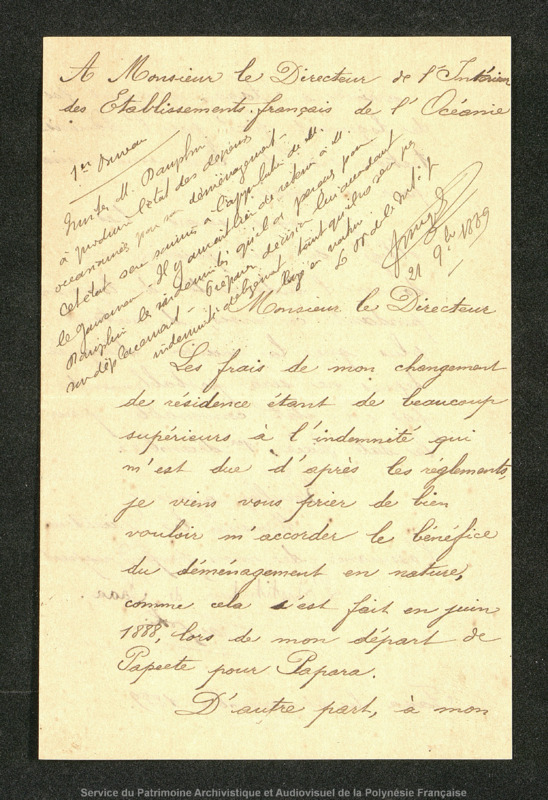 A Monsieur le Directeur de l'Intérieur
des Etablissements français de l'Océanie
1er Bureau
Inviter M. Dauphin
à produire l'état des dépenses
occasionnées par son déménagement.
Cet état sera soumis à l'approbation de M.
le gouverneur. Il y aurait lieu de retenir à M.
Dauphin les indemnités qu'il a perçues pour
son déplacement. Préparer décision lui accordant
indemnité
en nature.
21 9bre 1889
Monsieur le Directeur
Les frais de mon changement
de résidence étant de beaucoup
supérieurs à l'indemnité qui
m'est due d'après les réglements,
je viens vous prier de bien
vouloir m'accorder le bénéfice
du déménagement en nature,
comme cela s'est fait en juin
1888, lors de mon départ de
Papeete pour Papara.
D'autre part, à mon
Service du Patrimoine Archivistique et Audiovisuel de la Polynésie Française